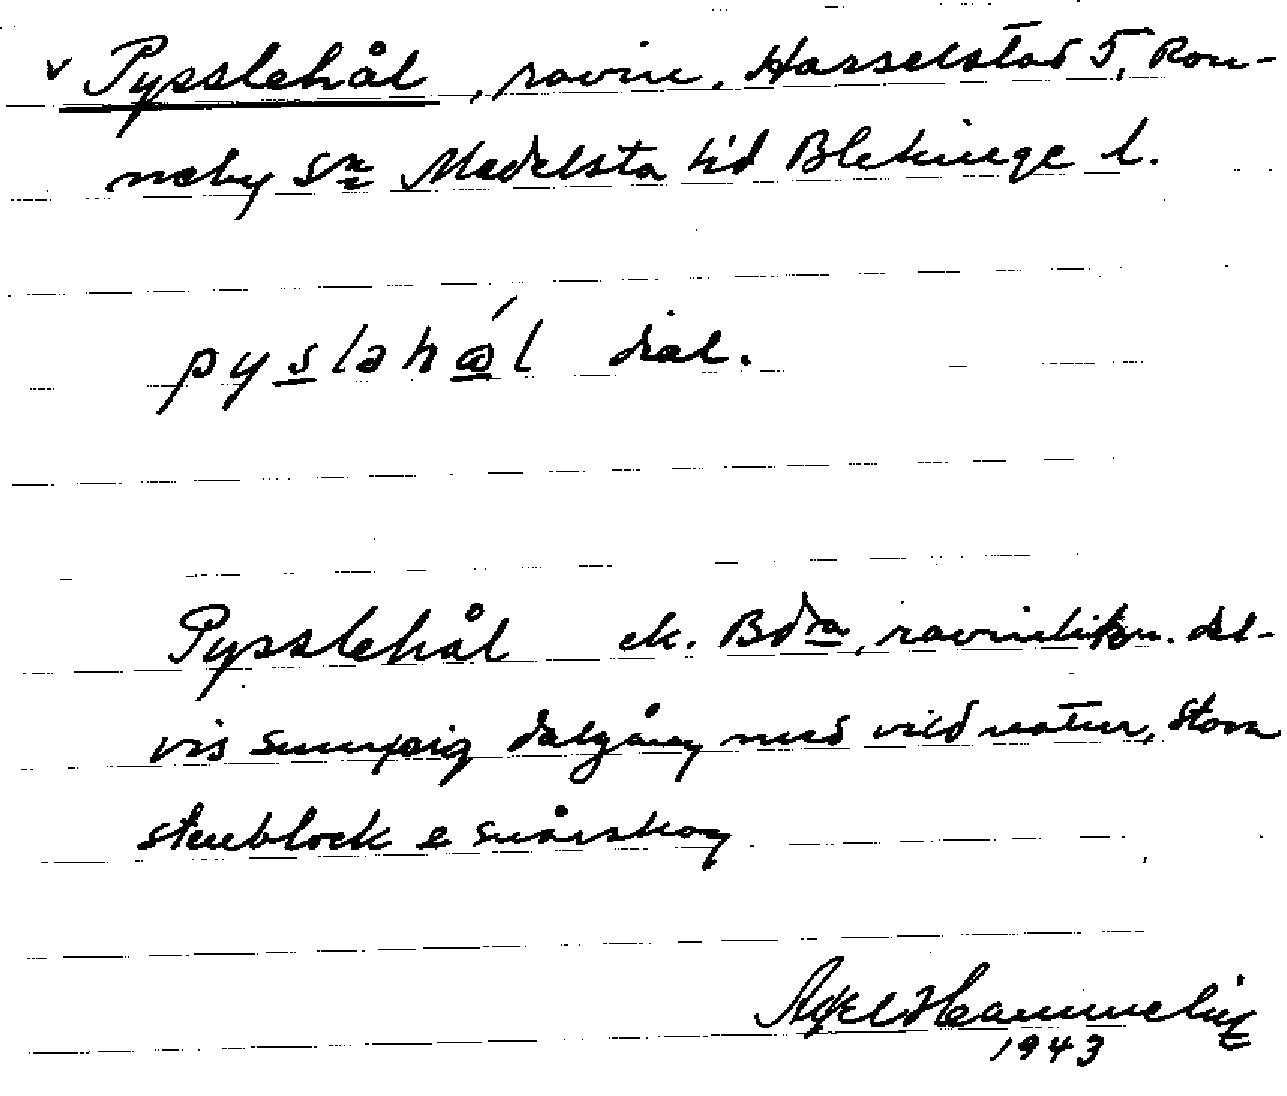 v Pysslehål, ravin, Hasselstad 5, Ron-
neby sn Medelsta hd Blekinge l.
pysləhål dial.
Pysslehål ek. Bdra, ravinlikn. del-
vis sumpig dalgång med vild natur, stora
stenblock e snårskog
Axel Hammelin
1943